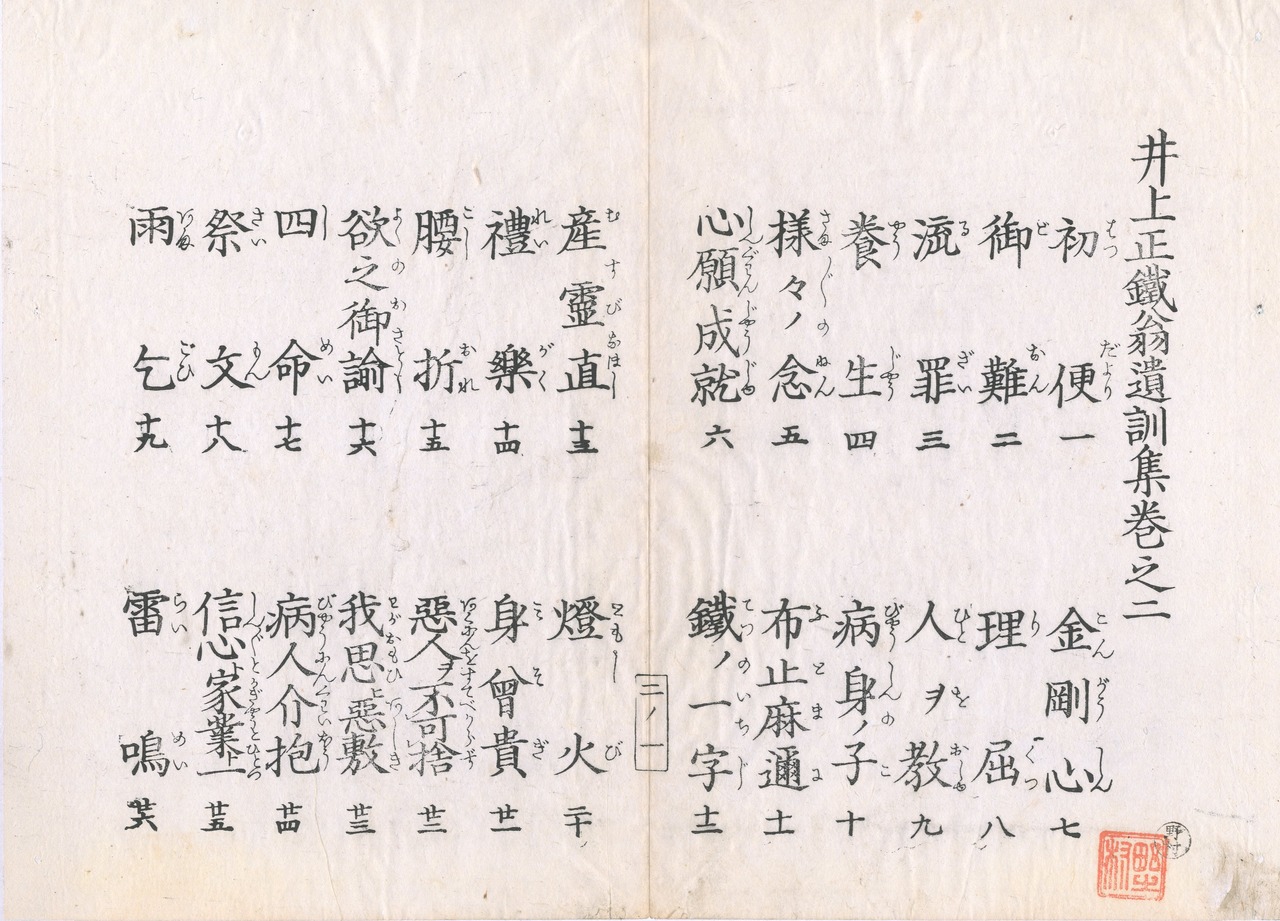 井上正鐵翁遺訓集巻之二
初便 一
御難 二
流罪 三
養生 四
様々ノ念 五
心願成就 六
金剛心 七
理屈 八
人ヲ教 九
病身ノ子 十
布止麻邇 十一
鐵ノ一字 十二
二ノ一
産靈直 十三
禮樂 十四
腰折 十五
欲之御諭 十六
四命 十七
祭文 十八
雨乞 十九
燈火 二十
身曾貴 廿一
惡人ヲ不可捨 廿二
我思惡敷 廿三
病人介抱 廿四
信心ト家業ト一 廿五
雷鳴 廿六
野村